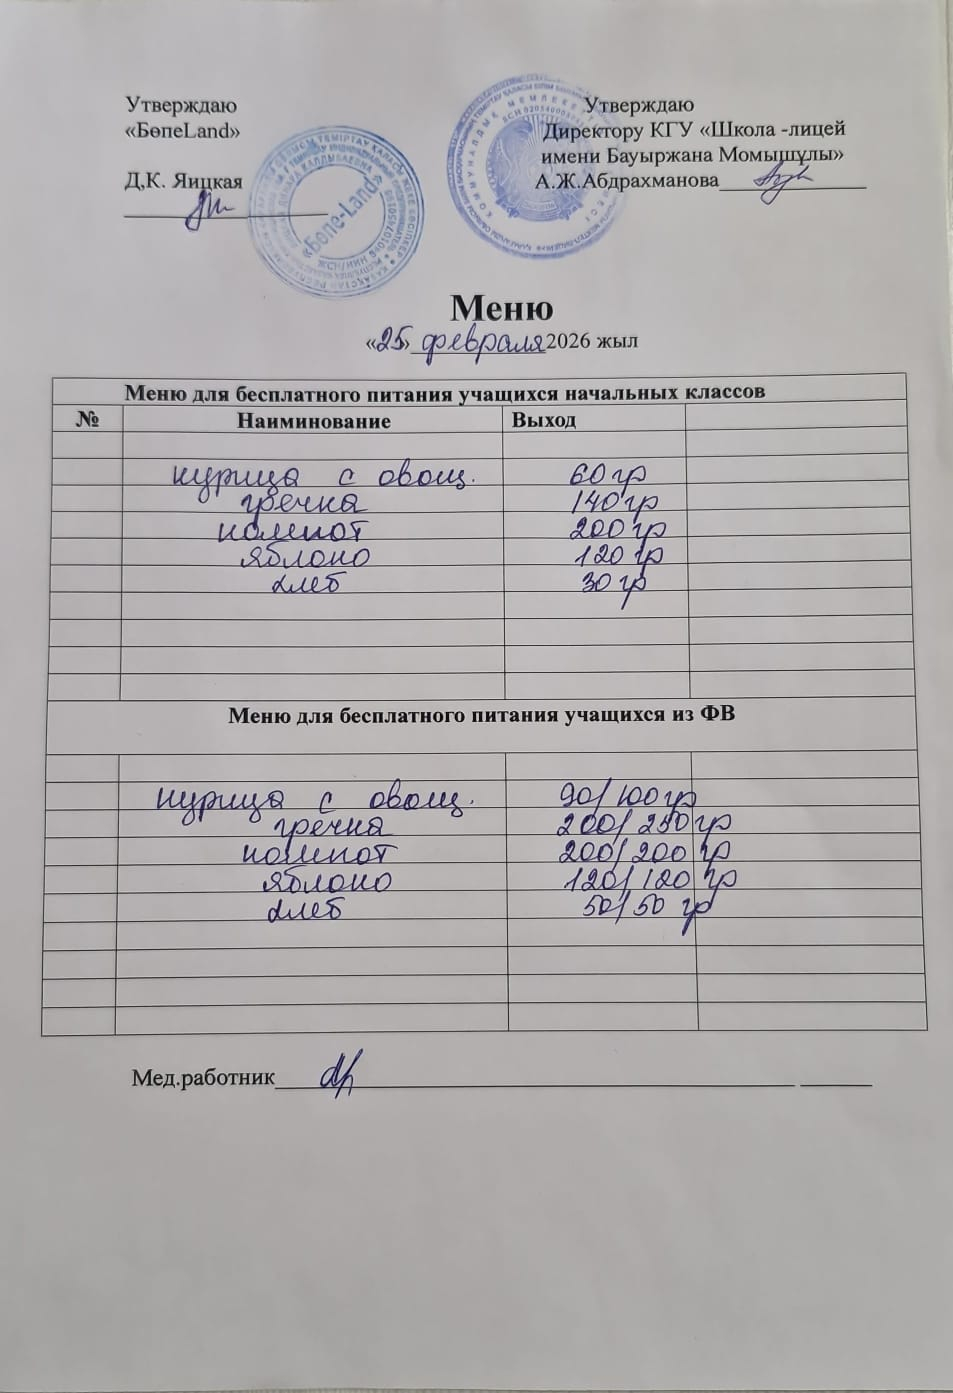 Утверждаю
«БөпеLand»
Д,К. Яицкая
Утверждаю
Директору КГУ «Школа -лицей
имени Бауыржана Момышұлы»
А.Ж.Абдрахманова
«Бөпе-Land»
Меню
«25» февраля 2026 жыл
Меню для бесплатного питания учащихся начальных классов
№ Наиминование Выход
курица с овощ. 60 гр
гречка 140 гр
компот 200 гр
яблоко 120 гр
хлеб 30 гр
Меню для бесплатного питания учащихся из ФВ
курица с овощ. 90/100 гр
гречка 200/250 гр
компот 200/200 гр
яблоко 120/120 гр
хлеб 50/50 гр
Мед.работник